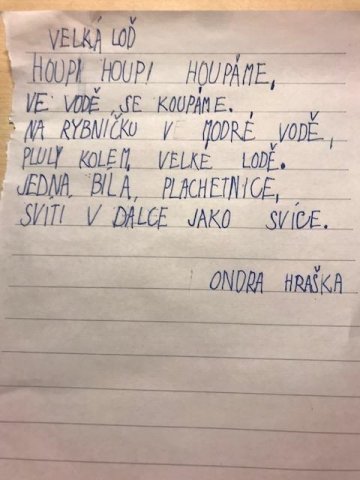 VELKÁ LOĎ
HOUPI HOUPI HOUPÁME,
VE VODĚ SE KOUPÁME.
NA RYBNÍČKU V MODRÉ VODĚ,
PLULY KOLEM VELKE LODĚ.
JEDNA BÍLÁ PLACHETNICE,
SVÍTI V DÁLCE JAKO SVÍCE.
ONDRA HRAŠKA